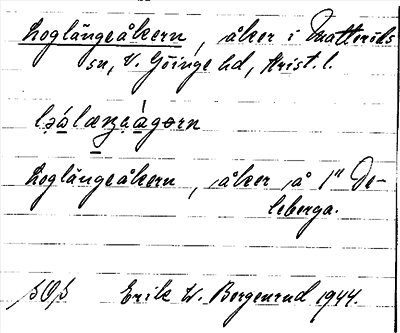 Loglängeåkern, åker i Matteröds
sn, V. Göinge hd, Krist. l.
Loglängeåkern, åker å 1" De-
leberga.
Erik W. Bergenrud 1944.